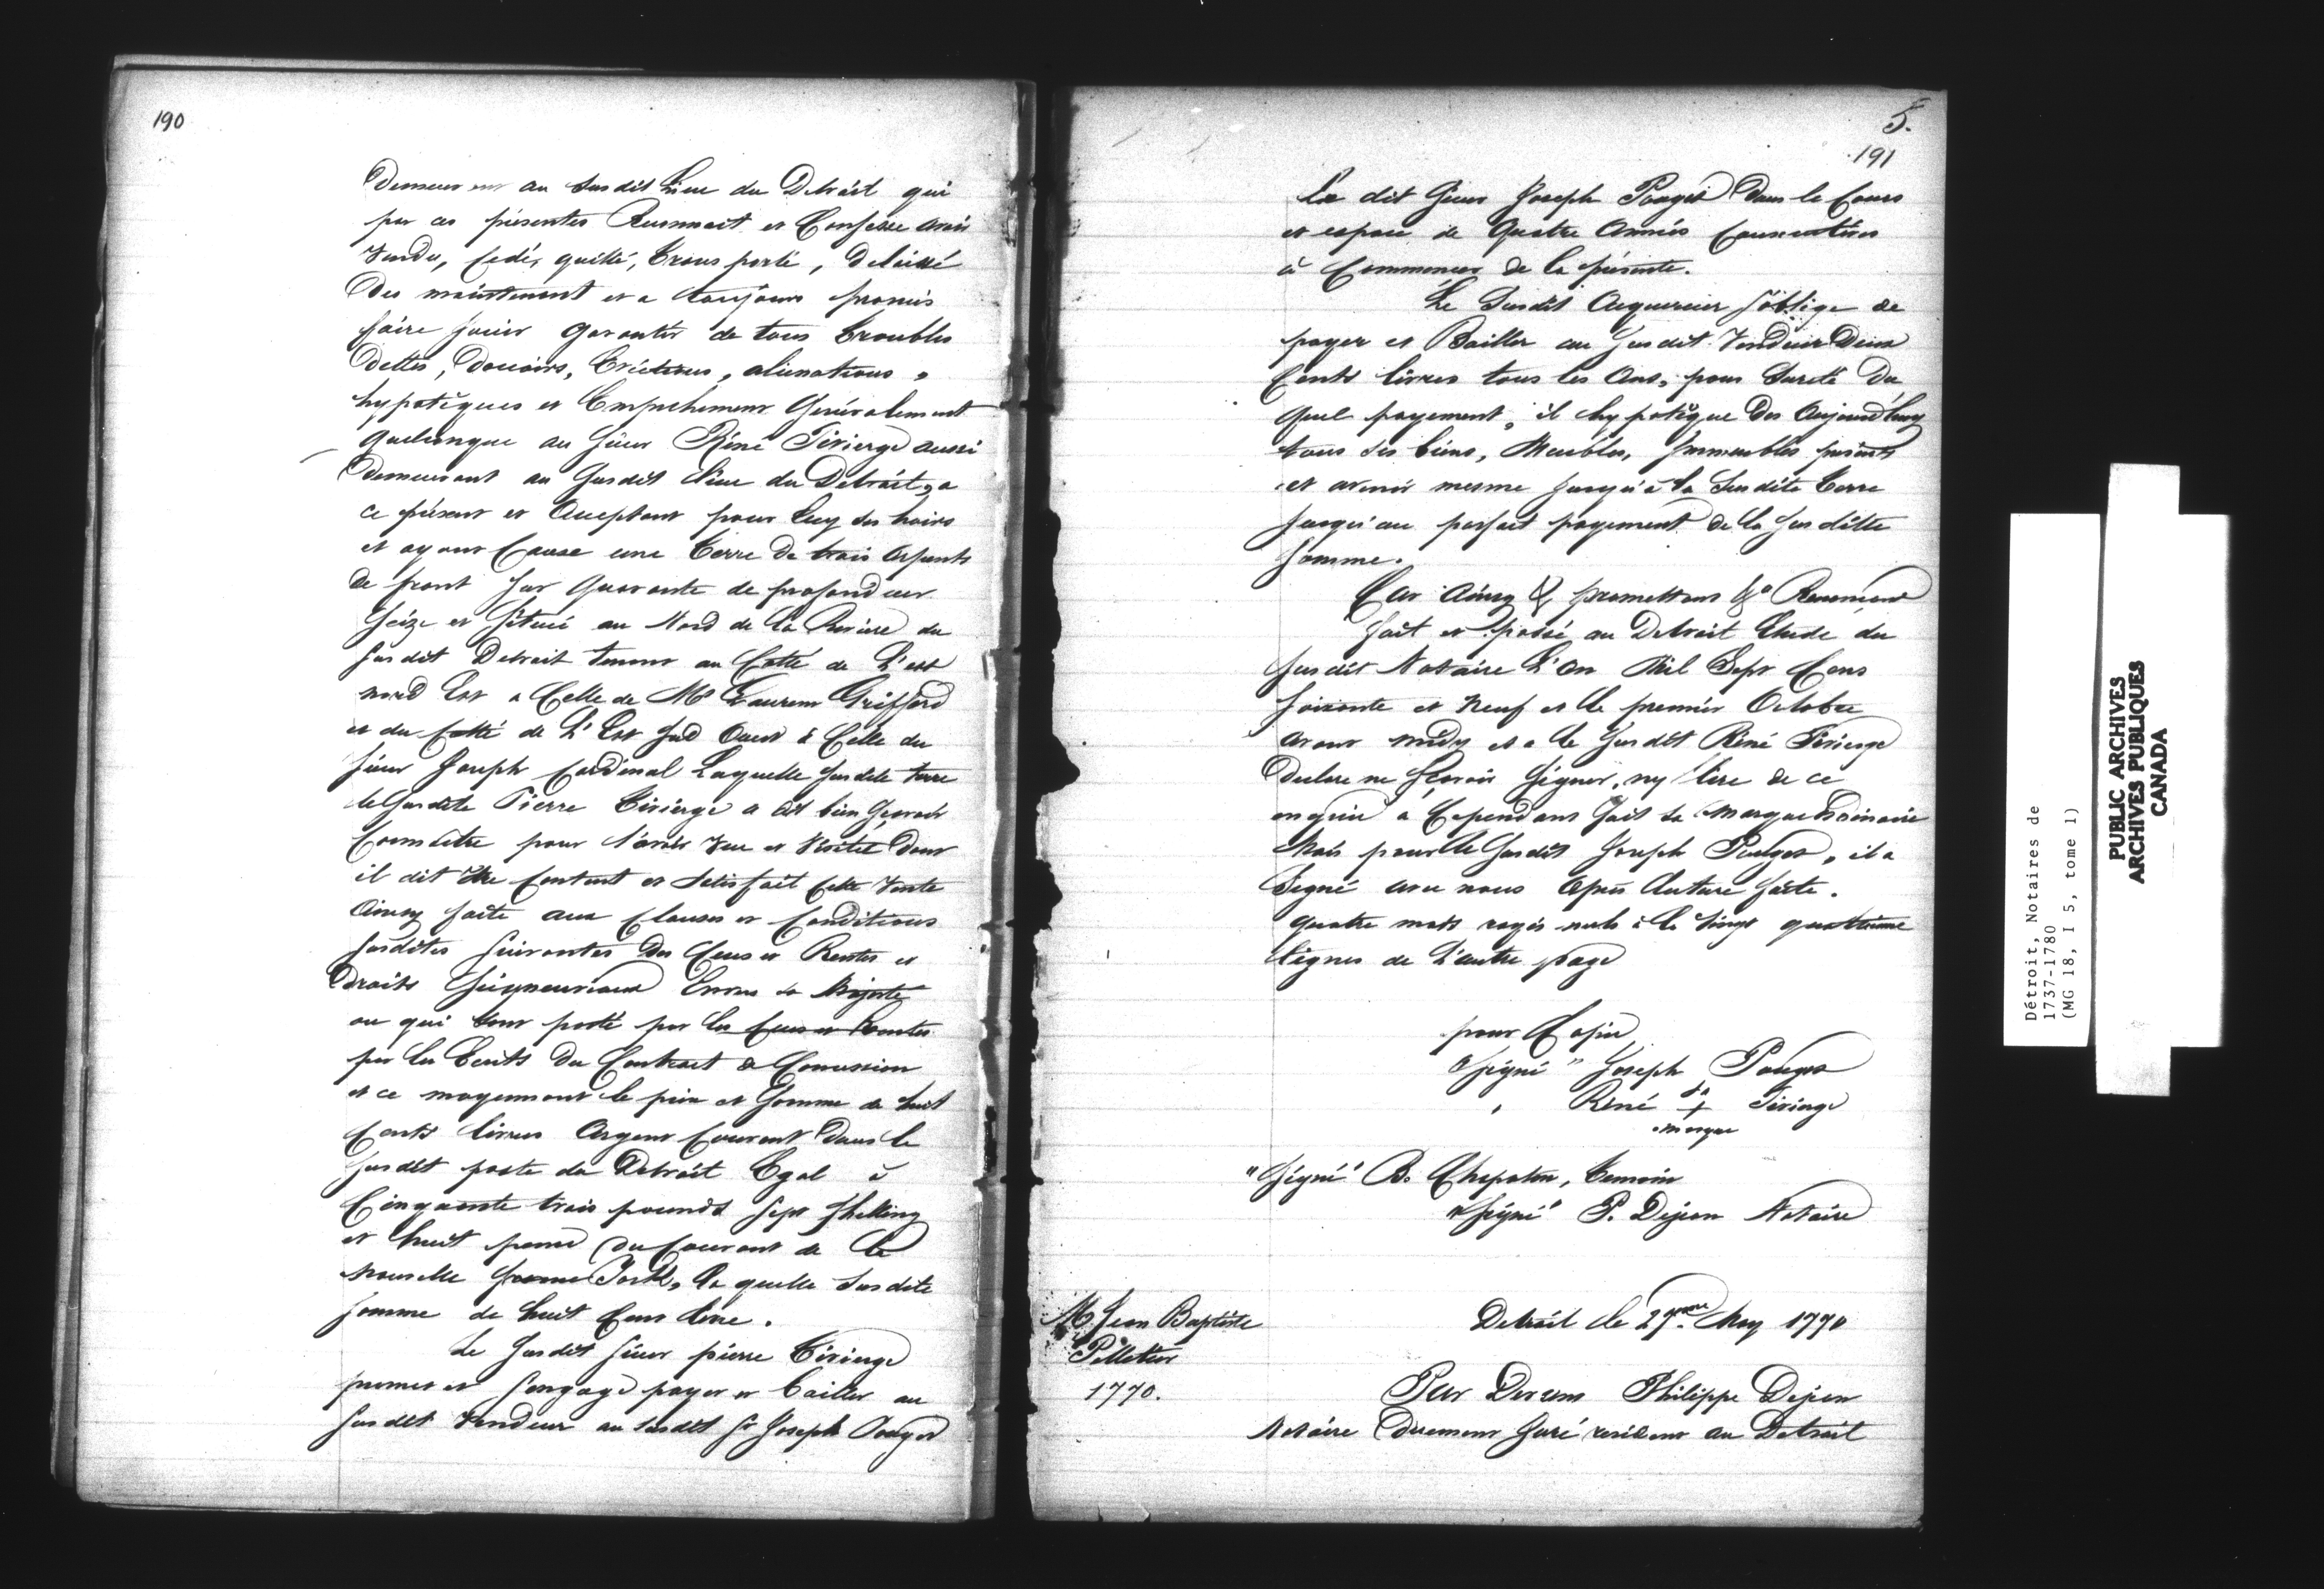 190
Demeurant au susdit Lieu du Detroit qui
par ces présentes Reconnait et Confesse avoir
Vendu, Cedé, quitté, transporté, delaissé
Des maintenant et a toujours promis
faire jouir Garantir de tous troubles
Dettes, Douairs, Evictions, alienations,
hypotèques et Empechement Generalement
Quelconque au Sieur Réné Tivierge aussi
Demeurant au susdit Lieu du Detroit, a
ce présent et Acceptant pour Luy ses hoirs
et ayant Cause une Terre de trois Arpents
de front sur Quarante de profondeur
Seize et Situé au Nord de la Riviere du
susdit Detroit tenant au Cotté de L'est
nord Est a Celle de Mr Laurem Griffard
et du Cotté de L'Est Sud Ouest à Celle du
Sieur Joseph Cardinal Laquelle susdite terre
le susdite Pierre Tivierge a dit bien Sçavoir
Connoitre pour l'avoir Vue et Visitté Dont
il dit être Content et Satisfait Cette Vente
Ainsy faite aux Clauses et Conditions
susdites suivantes Des Cens et Rentes et
Droits Seigneuriaux Envers sa Majesté
ou qui sont porté par les Cens et Rentes
par les Ecrits du Contract de Concession
et ce moyennant le prix et Somme de huit
Cents livres Argent Courant Dans le
susdit poste du Detroit Egal à
Cinquante trois pounds Sept Shelling
et huit pence du Courant de la
Nouvelle York, la quelle susdite
somme de huit Cens livre.
Le susdit Sieur pierre Tivierge
promet et s'engage payer et bailler au
susdit Vendeur au susdit Sr Joseph Pouget
5.
191
Le dit Sieur Joseph Pouget Dans le Cours
et espace de Quatre Années Consecutives
à Commencer de la présente.
Le Susdit Acquereur s'oblige de
payer et Bailler au susdit Vendeur Deux
Cents livres tous les Ans, pour Sureté Du
quel payement, il hypotèque Des Aujourd'huy
tous ses biens, Meubles, Immeubles présents
et avenir mesme jusqu'à la Susdite terre
jusqu'au parfait payement de la susditte
somme.
Car Ainsy & promettans &a Renonçant
Fait et passé au Detroit Etude du
susdit Notaire L'An Mil Sept Cens
soixante et Neuf et le premier Octobre
avant midy et a le susdit Réné Tivierge
Declare ne sçavoir Signer, ny lire de ce
enquis a Cependant fait sa marque ordinaire
Mais pour le susdit Joseph Pouget, il a
Signé avec nous Après lecture faite.
Quatre mots rayés nuls à la Vingt quatrième
lignes de L'autre page
pour Copie
"Signé" Joseph Pouget
" Réné sa + Tivierge
marque
"Signé" B. Chapoton, temoin
"Signé" P. Dejean Notaire
Mr Jean Baptiste
Pelletier
1770.
Detroit le 29eme May 1770
Par Devans Philippe Dejean
Notaire Duement Juré resident au Detroit
Détroit, Notaires de
1737-1780
(MG 18, I 5, tome 1)
PUBLIC ARCHIVES
ARCHIVES PUBLIQUES
CANADA